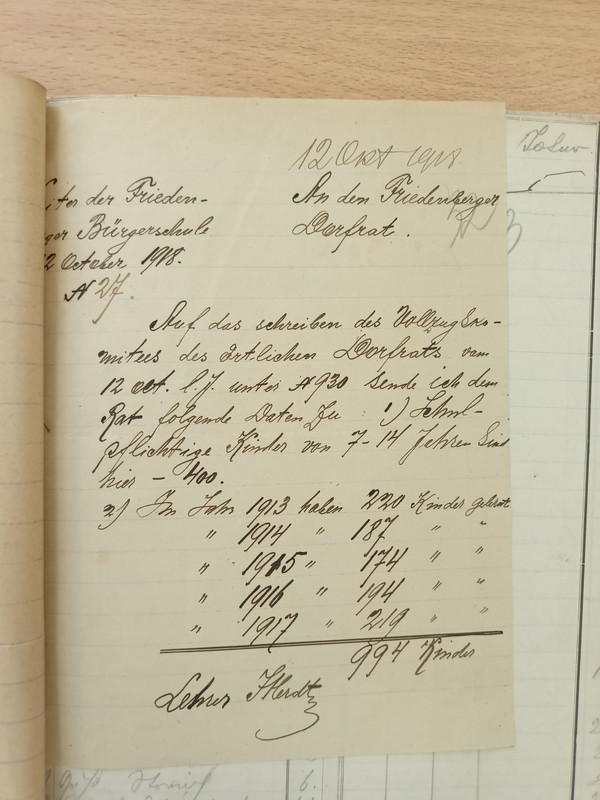 12 Okt 1918
iter der Frieden-
ger Bürgerschule
2 October 1918.
N 27.
An den Friedenberger
Dorfrat.
Auf das schreiben des Vollzugsko-
mitees des örtlichen Dorfrats vom
12 oct. l. J. unter N 930 sende ich dem
Rat folgende Daten zu : 1) Schul-
pflichtige Kinder von 7-14 Jahren sind
hier - 400.
2) Im Jahr 1913 haben 220 Kinder
" 1914 " 187 " "
" 1915 " 174 " "
" 1916 " 194 " "
" 1917 " 219 " "
994 Kinder
Lehrer Herdt